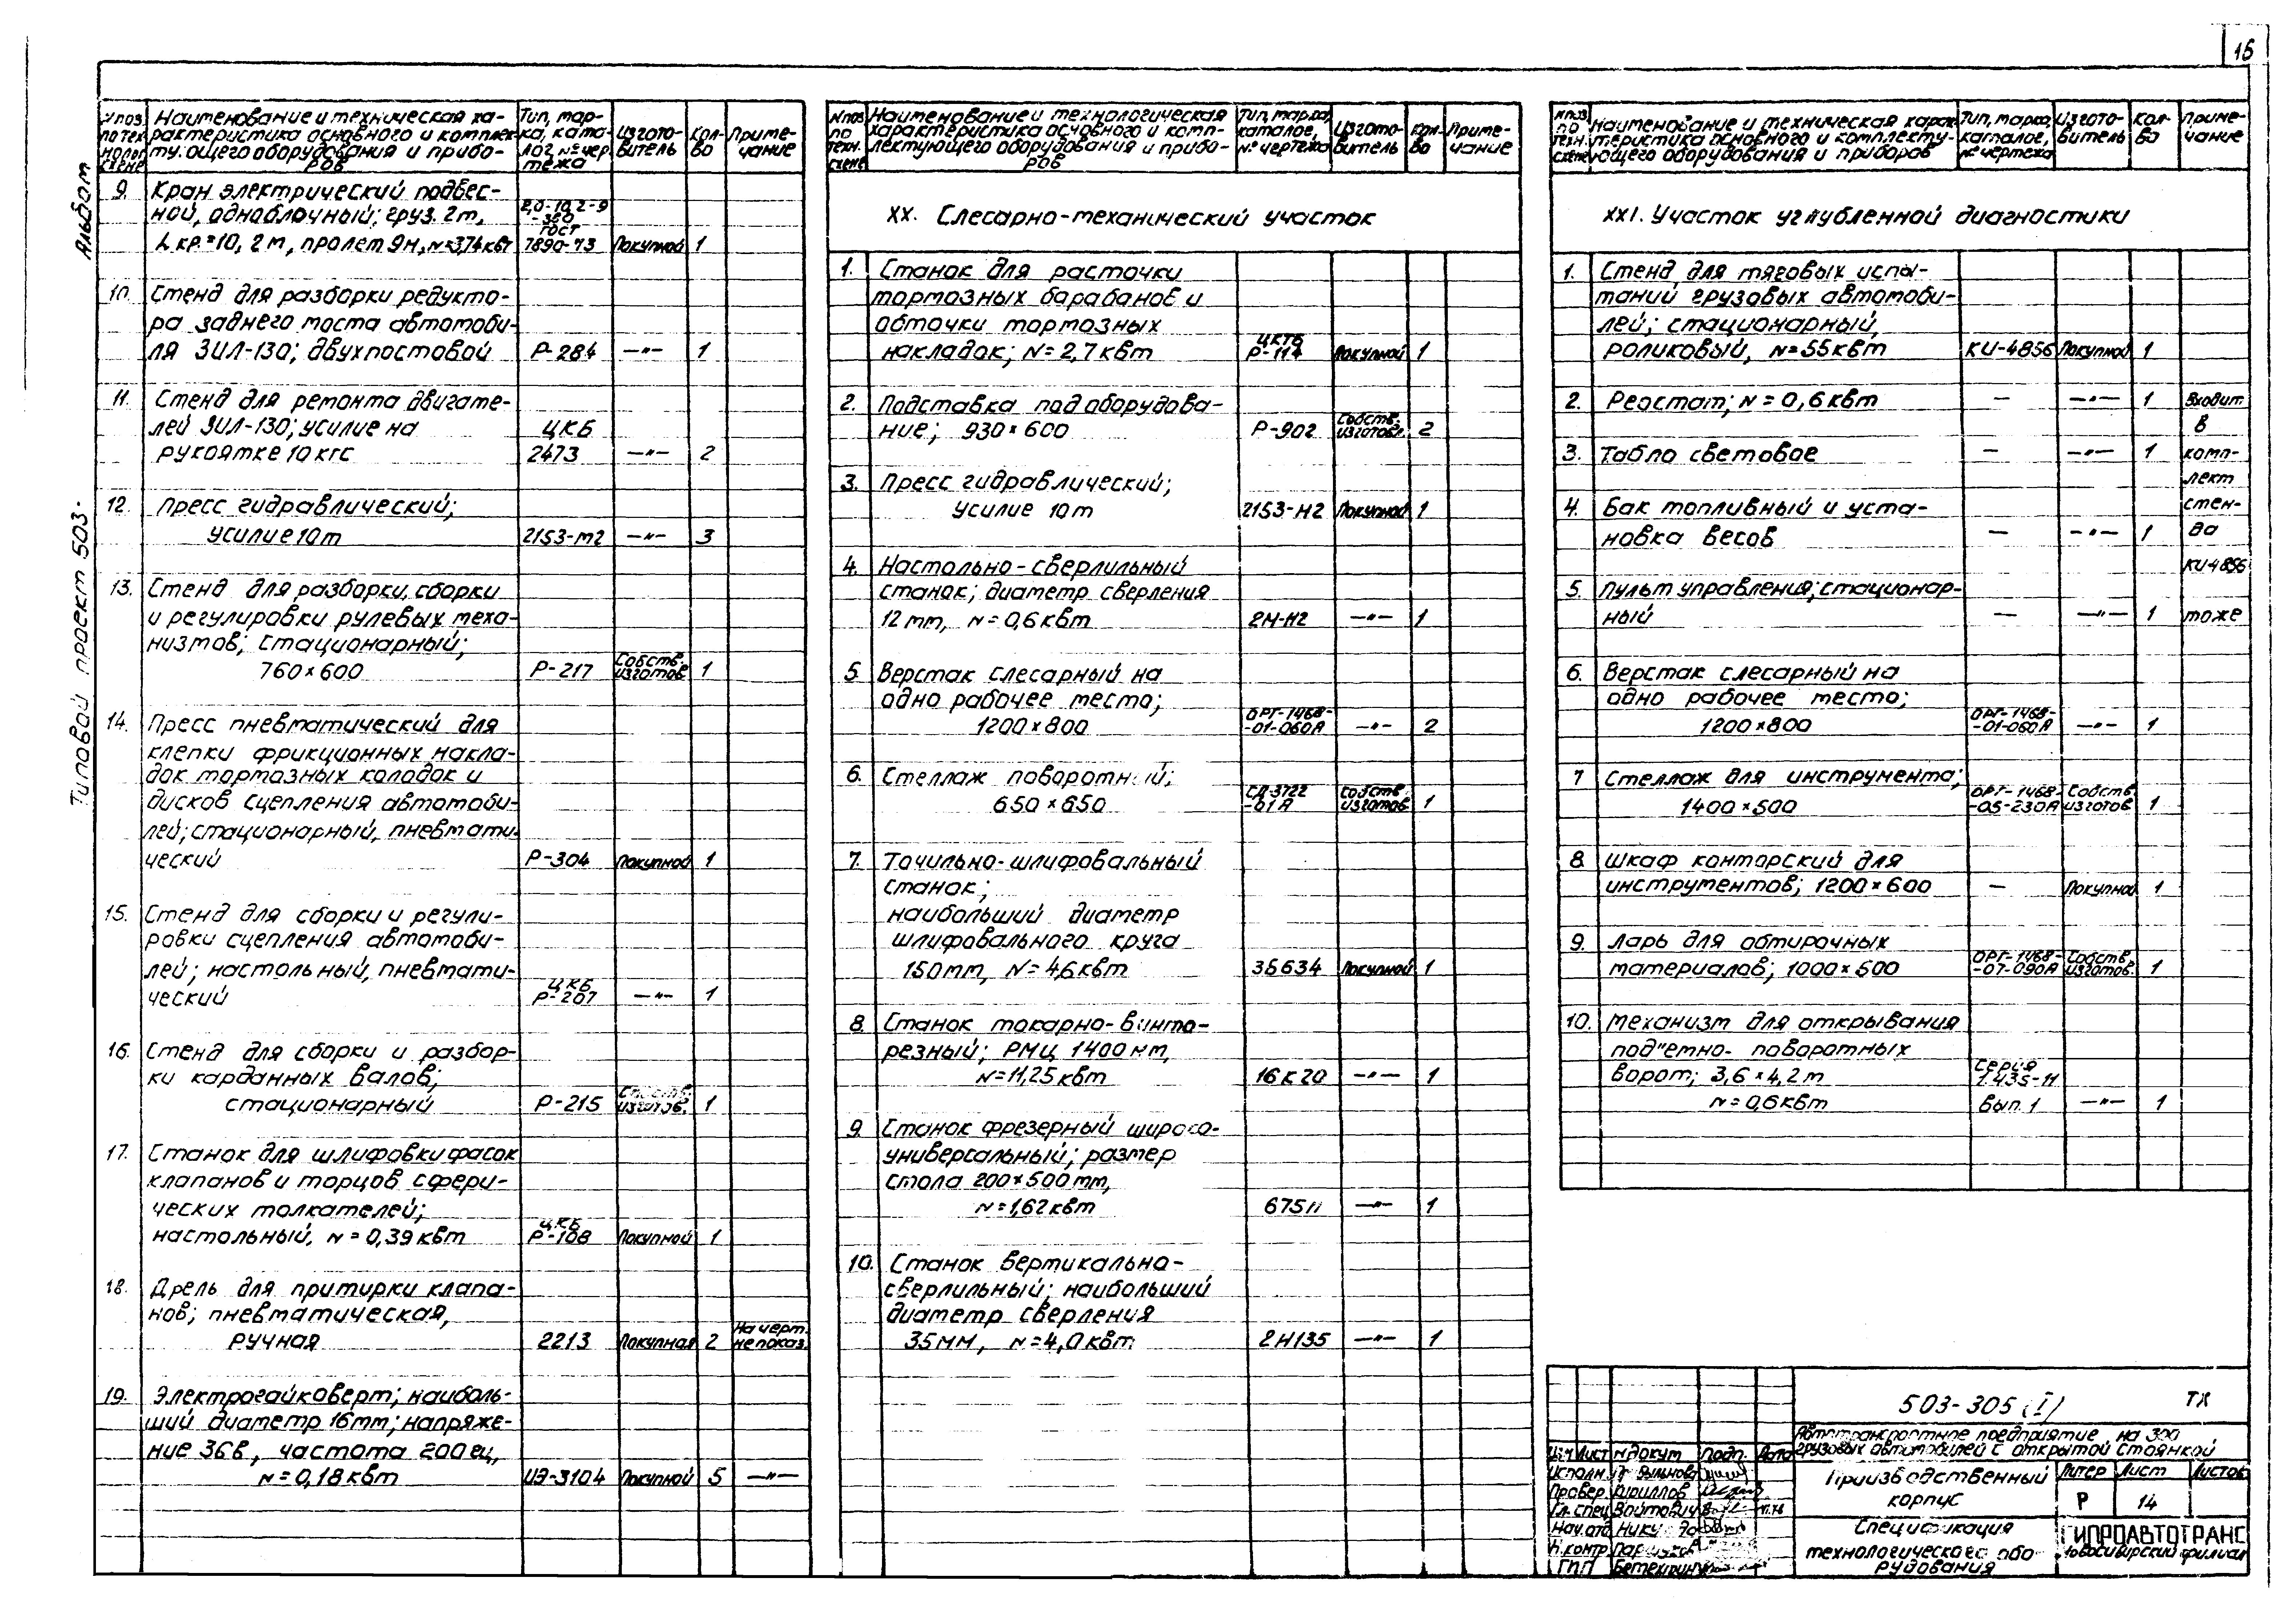 15
Альбом
Типовой проект 503-
№ поз. по технолог. схеме
Наименование и техническая ха-
рактеристика основного и комплек-
тующего оборудования и прибо-
ров
Тип, мар-
ка, ката-
лог, № чер
тежа
Изгото-
витель
Кол-
во
Приме-
чание
9. Кран электрический подвес-
ной, однаблочный; груз. 2т, 2,0-10,2-9
-380
ГОСТ
λ кр.=10,2м, пролет 9м, N=3,74квт 7890-73 Покупной 1
10. Стенд для разборки редукто-
ра заднего моста автомоби-
ля ЗИЛ-130; двухпостовой Р-284 —"— 1
11. Стенд для ремонта двигате-
лей ЗИЛ-130; усилие на ЦКБ
рукоятке 10 кгс 2473 —"— 2
12. Пресс гидравлический;
усилие 10т 2153-м2 —"— 3
13. Стенд для разборки, сборки
и регулировки рулевых меха-
низмов; стационарный; Собств.
760×600 Р-217 изготов. 1
14. Пресс пневматический для
клепки фрикционных накла-
док тормозных колодок и
дисков сцепления автомоби-
лей; стационарный, пневмати-
ческий Р-304 Покупной 1
15. Стенд для сборки и регули-
ровки сцепления автомоби-
лей; настольный, пневмати- ЦКБ
ческий Р-207 —"— 1
16. Стенд для сборки и разбор-
ки карданных валов; Собств.
стационарный Р-215 изготов. 1
17. Станок для шлифовки фасок
клапанов и торцов сфери-
ческих толкателей; ЦКБ
настольный, N=0,39квт Р-108 Покупной 1
18. Дрель для притирки клапа-
нов; пневматическая, На черт.
ручная 2213 Покупная 2 не показ.
19. Электрогайковерт; наиболь-
ший диаметр 16мм; напряже-
ние 36в, частота 200гц,
N=0,18квт ИЭ-3104 Покупной 5 —"—
№ поз. по техн. схеме
Наименование и технологическая
характеристика основного и комп-
лектующего оборудования и прибо-
ров
Тип, марка,
каталог,
№ чертежа
Изгото-
витель
Кол-
во
Приме-
чание
XX. Слесарно-механический участок
1. Станок для расточки
тормозных барабанов и
обточки тормозных ЦКТБ
накладок; N=2,7квт Р-114 Покупной 1
2. Подставка под оборудова- Собств.
ние; 930×600 Р-902 изготовл. 2
3. Пресс гидравлический;
усилие 10т 2153-Н2 Покупной 1
4. Настольно-сверлильный
станок; диаметр сверления
12мм, N=0,6квт 2М-Н2 —"— 1
5. Верстак слесарный на
одно рабочее место; ОРГ-1468-
1200×800 -01-060А —"— 2
6. Стеллаж поворотный; СД-3722 Собств.
650×650 -01А изготов. 1
7. Точильно-шлифовальный
станок;
наибольший диаметр
шлифовального круга
150мм, N=4,6квт 3Б634 Покупной 1
8. Станок токарно-винто-
резный; РМЦ 1400мм,
N=11,25квт 16К20 —"— 1
9. Станок фрезерный широко-
универсальный; размер
стола 200×500мм,
N=1,62квт 675П —"— 1
10. Станок вертикально-
сверлильный; наибольший
диаметр сверления
35мм, N=4,0квт 2Н135 —"— 1
№ поз. по техн. схеме
Наименование и техническая харак-
теристика основного и комплекту-
ющего оборудования и приборов
Тип, марка,
каталог,
№ чертежа
Изгото-
витель
Кол-
во
Приме-
чание
XXI. Участок углубленной диагностики
1. Стенд для тяговых испы-
таний грузовых автомоби-
лей; стационарный,
роликовый, N=55квт КИ-4856 Покупной 1
2. Реостат; N=0,6квт — —"— 1 Входит
в
3. Табло световое — —"— 1 комп-
лект
4. Бак топливный и уста- стен-
новка весов — —"— 1 да
КИ-4856
5. Пульт управления; стационар-
ный — —"— 1 тоже
6. Верстак слесарный на
одно рабочее место; ОРГ-1468-
1200×800 -01-060А —"— 1
7 Стеллаж для инструмента; ОРГ-1468- Собств.
1400×500 -05-230А изготов 1
8. Шкаф конторский для
инструментов; 1200×600 — Покупной 1
9. Ларь для обтирочных ОРГ-1468- Собств.
материалов; 1000×500 -07-090А изготов. 1
10. Механизм для открывания
под"емно-поворотных
ворот; 3,6×4,2м Серия 1.435-11
N=0,6квт Вып. 1 —"— 1
503-305 (I) ТХ
Автотранспортное предприятие на 300
грузовых автомобилей с открытой стоянкой
Изм Лист № докум Подп. Дата
Исполн.
Провер. Кириллов
Гл. спец Войтович
Нач. отд
Н. контр.
ГИП
Производственный
корпус
Литер Лист Листов
Р 14
Спецификация
технологического обо-
рудования
ГИПРОАВТОТРАНС
Новосибирский филиал